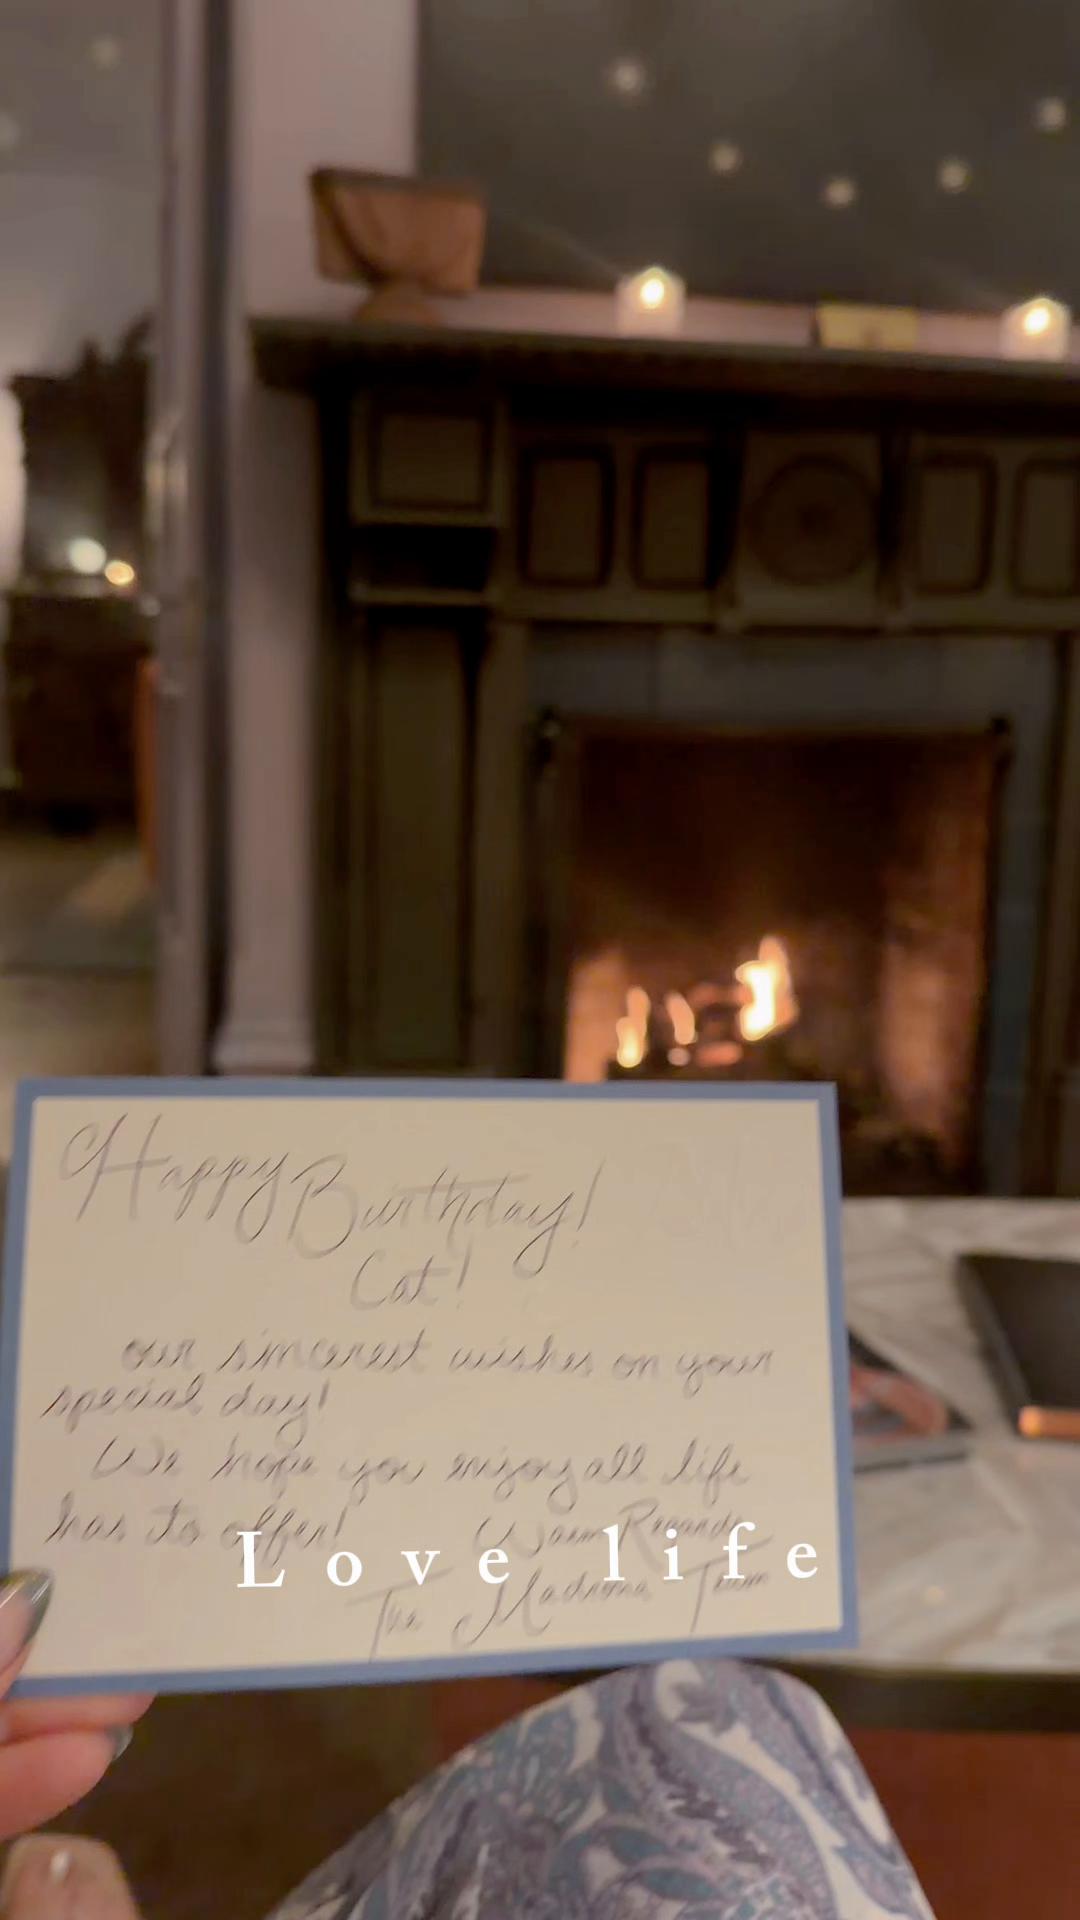 Happy Birthday!
Cat!
our sincerest wishes on your
special day!
We hope you enjoy all life
has to offer!
Warm Regards
The Madrona Team
Love life